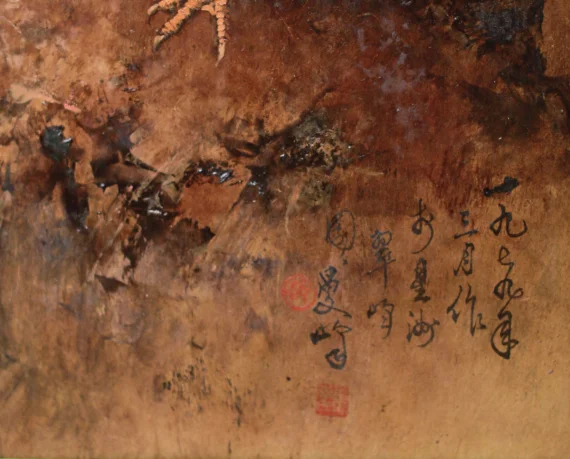 一九七九年
三月作
於星洲
翠峰
曼峰